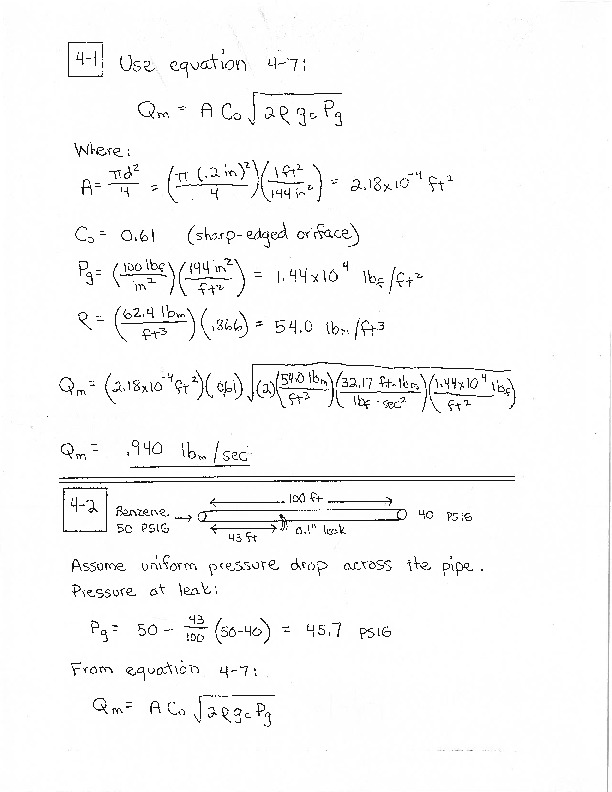 4-1 Use equation 4-7:
Qm = A Co √(2ρ gc Pg)
Where:
A = πd²/4 = (π (.2 in)²/4)(1 ft²/144 in²) = 2.18x10⁻⁴ ft²
Co = 0.61 (sharp-edged oriface)
Pg = (100 lbf/in²)(144 in²/ft²) = 1.44x10⁴ lbf/ft²
ρ = (62.4 lbm/ft³)(.866) = 54.0 lbm/ft³
Qm = (2.18x10⁻⁴ ft²)(.61) √((2)(54.0 lbm/ft³)(32.17 ft·lbm/lbf·sec²)(1.44x10⁴ lbf/ft²))
Qm = .940 lbm/sec
4-2
100 ft
Benzene
50 PSIG
40 PSIG
43 ft
0.1" leak
Assume uniform pressure drop across the pipe.
Pressure at leak:
Pg = 50 - 43/100 (50-40) = 45.7 PSIG
From equation 4-7:
Qm = A Co √(2ρ gc Pg)